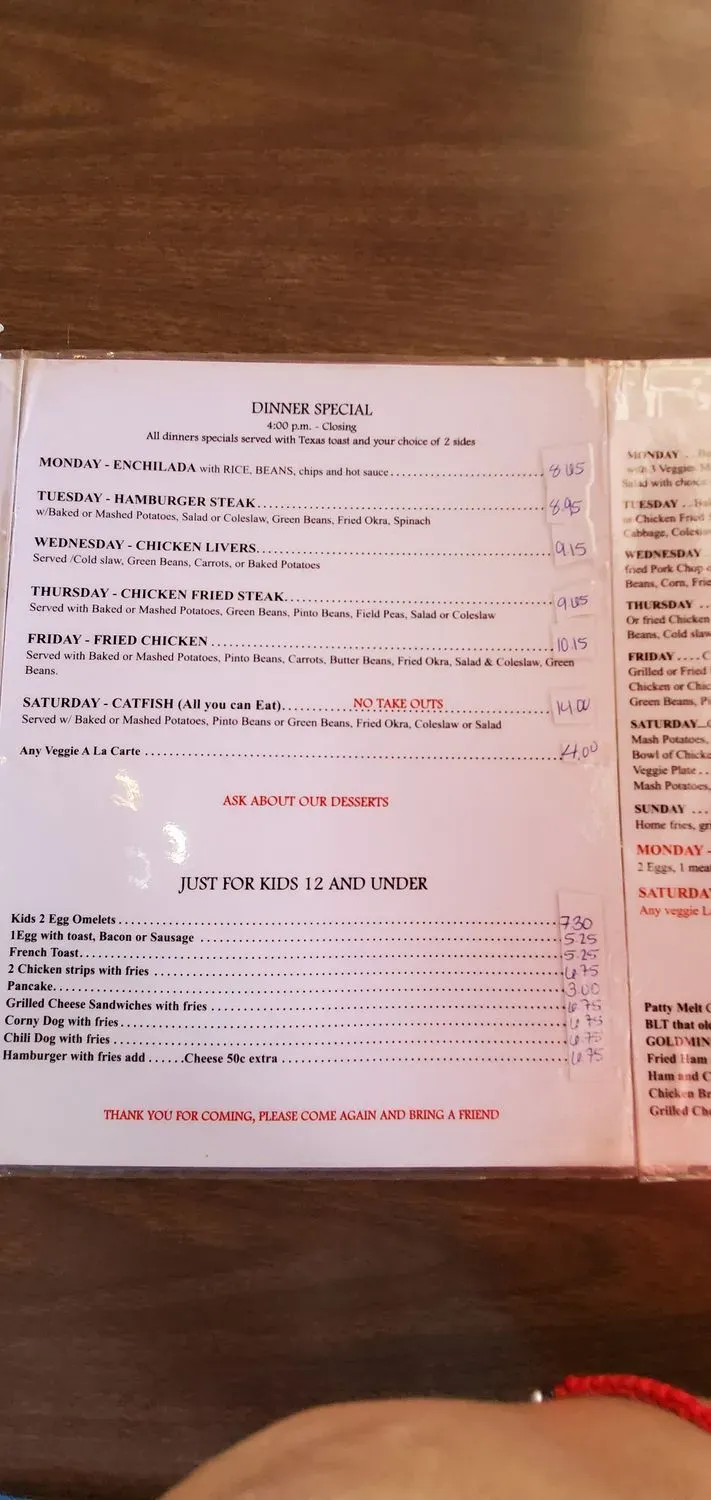 DINNER SPECIAL
4:00 p.m. - Closing
All dinners specials served with Texas toast and your choice of 2 sides
MONDAY - ENCHILADA with RICE, BEANS, chips and hot sauce 8.65
TUESDAY - HAMBURGER STEAK 8.95
w/Baked or Mashed Potatoes, Salad or Coleslaw, Green Beans, Fried Okra, Spinach
WEDNESDAY - CHICKEN LIVERS 9.15
Served /Cold slaw, Green Beans, Carrots, or Baked Potatoes
THURSDAY - CHICKEN FRIED STEAK 9.65
Served with Baked or Mashed Potatoes, Green Beans, Pinto Beans, Field Peas, Salad or Coleslaw
FRIDAY - FRIED CHICKEN 10.15
Served with Baked or Mashed Potatoes, Pinto Beans, Carrots, Butter Beans, Fried Okra, Salad & Coleslaw, Green
Beans.
SATURDAY - CATFISH (All you can Eat) NO TAKE OUTS 14.00
Served w/ Baked or Mashed Potatoes, Pinto Beans or Green Beans, Fried Okra, Coleslaw or Salad
Any Veggie A La Carte 4.00
ASK ABOUT OUR DESSERTS
JUST FOR KIDS 12 AND UNDER
Kids 2 Egg Omelets 7.30
1Egg with toast, Bacon or Sausage 5.25
French Toast 5.25
2 Chicken strips with fries 6.75
Pancake 3.00
Grilled Cheese Sandwiches with fries 6.75
Corny Dog with fries 6.75
Chili Dog with fries 6.75
Hamburger with fries add ......Cheese 50c extra 6.75
THANK YOU FOR COMING, PLEASE COME AGAIN AND BRING A FRIEND
MONDAY
with 3 Veggies
Salad with
TUESDAY
or Chicken Fried
Cabbage,
WEDNESDAY
fried Pork Chop
Beans, Corn,
THURSDAY
Or fried Chicken
Beans, Cold slaw
FRIDAY
Grilled or Fried
Chicken or
Green Beans,
SATURDAY
Mash Potatoes,
Bowl of
Veggie Plate
Mash Potatoes,
SUNDAY
Home fries,
MONDAY -
2 Eggs, 1
SATURDA
Any veggie
Patty Melt
BLT that
GOLDMIN
Fried Ham
Ham and
Chicken
Grilled